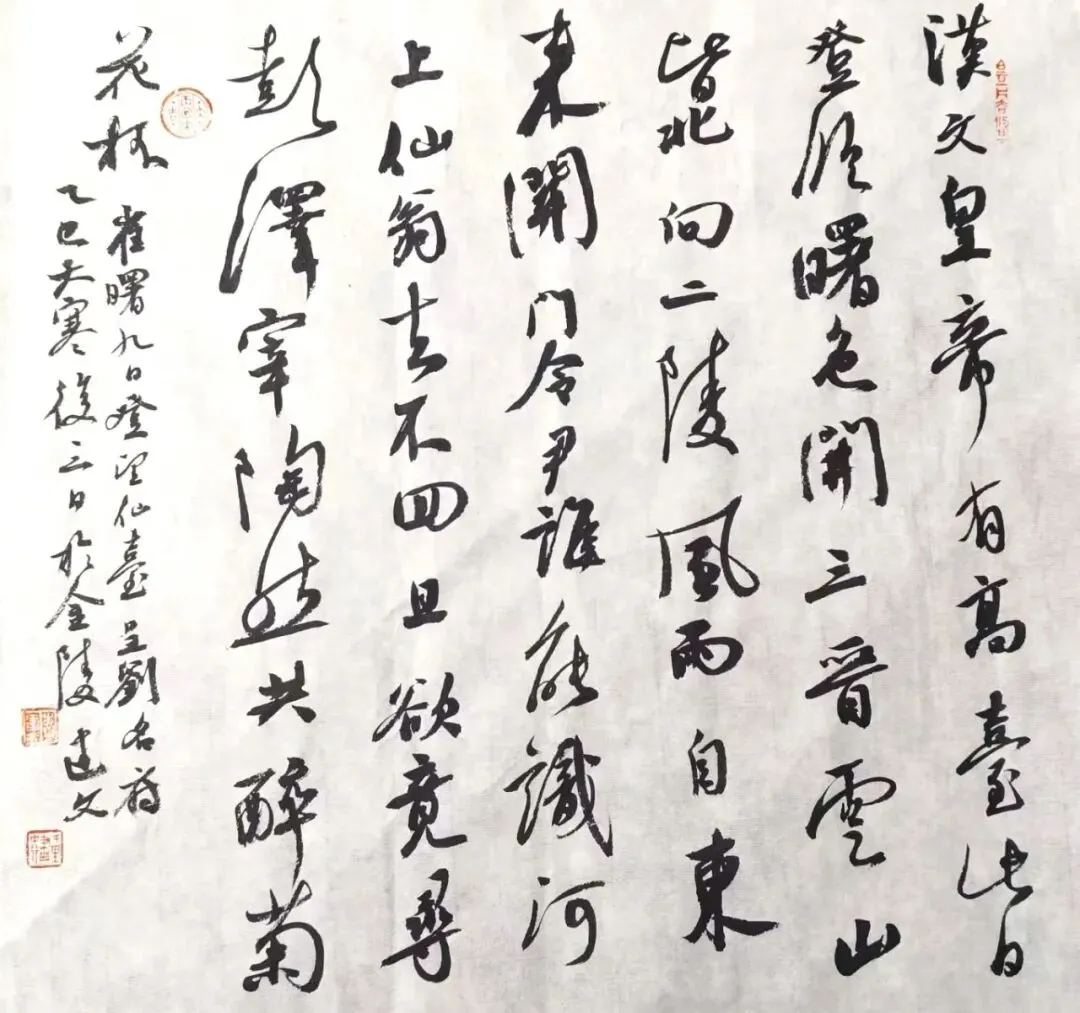 漢文皇帝有高臺此日
登臨曙色開三晋雲山
皆北向二陵風雨自東
来關門令尹誰能識河
上仙翁去不回且欲竟尋
彭澤宰陶然共醉菊
花杯
崔曙九日登望仙臺呈劉名府
乙巳大寒後三日於金陵建文